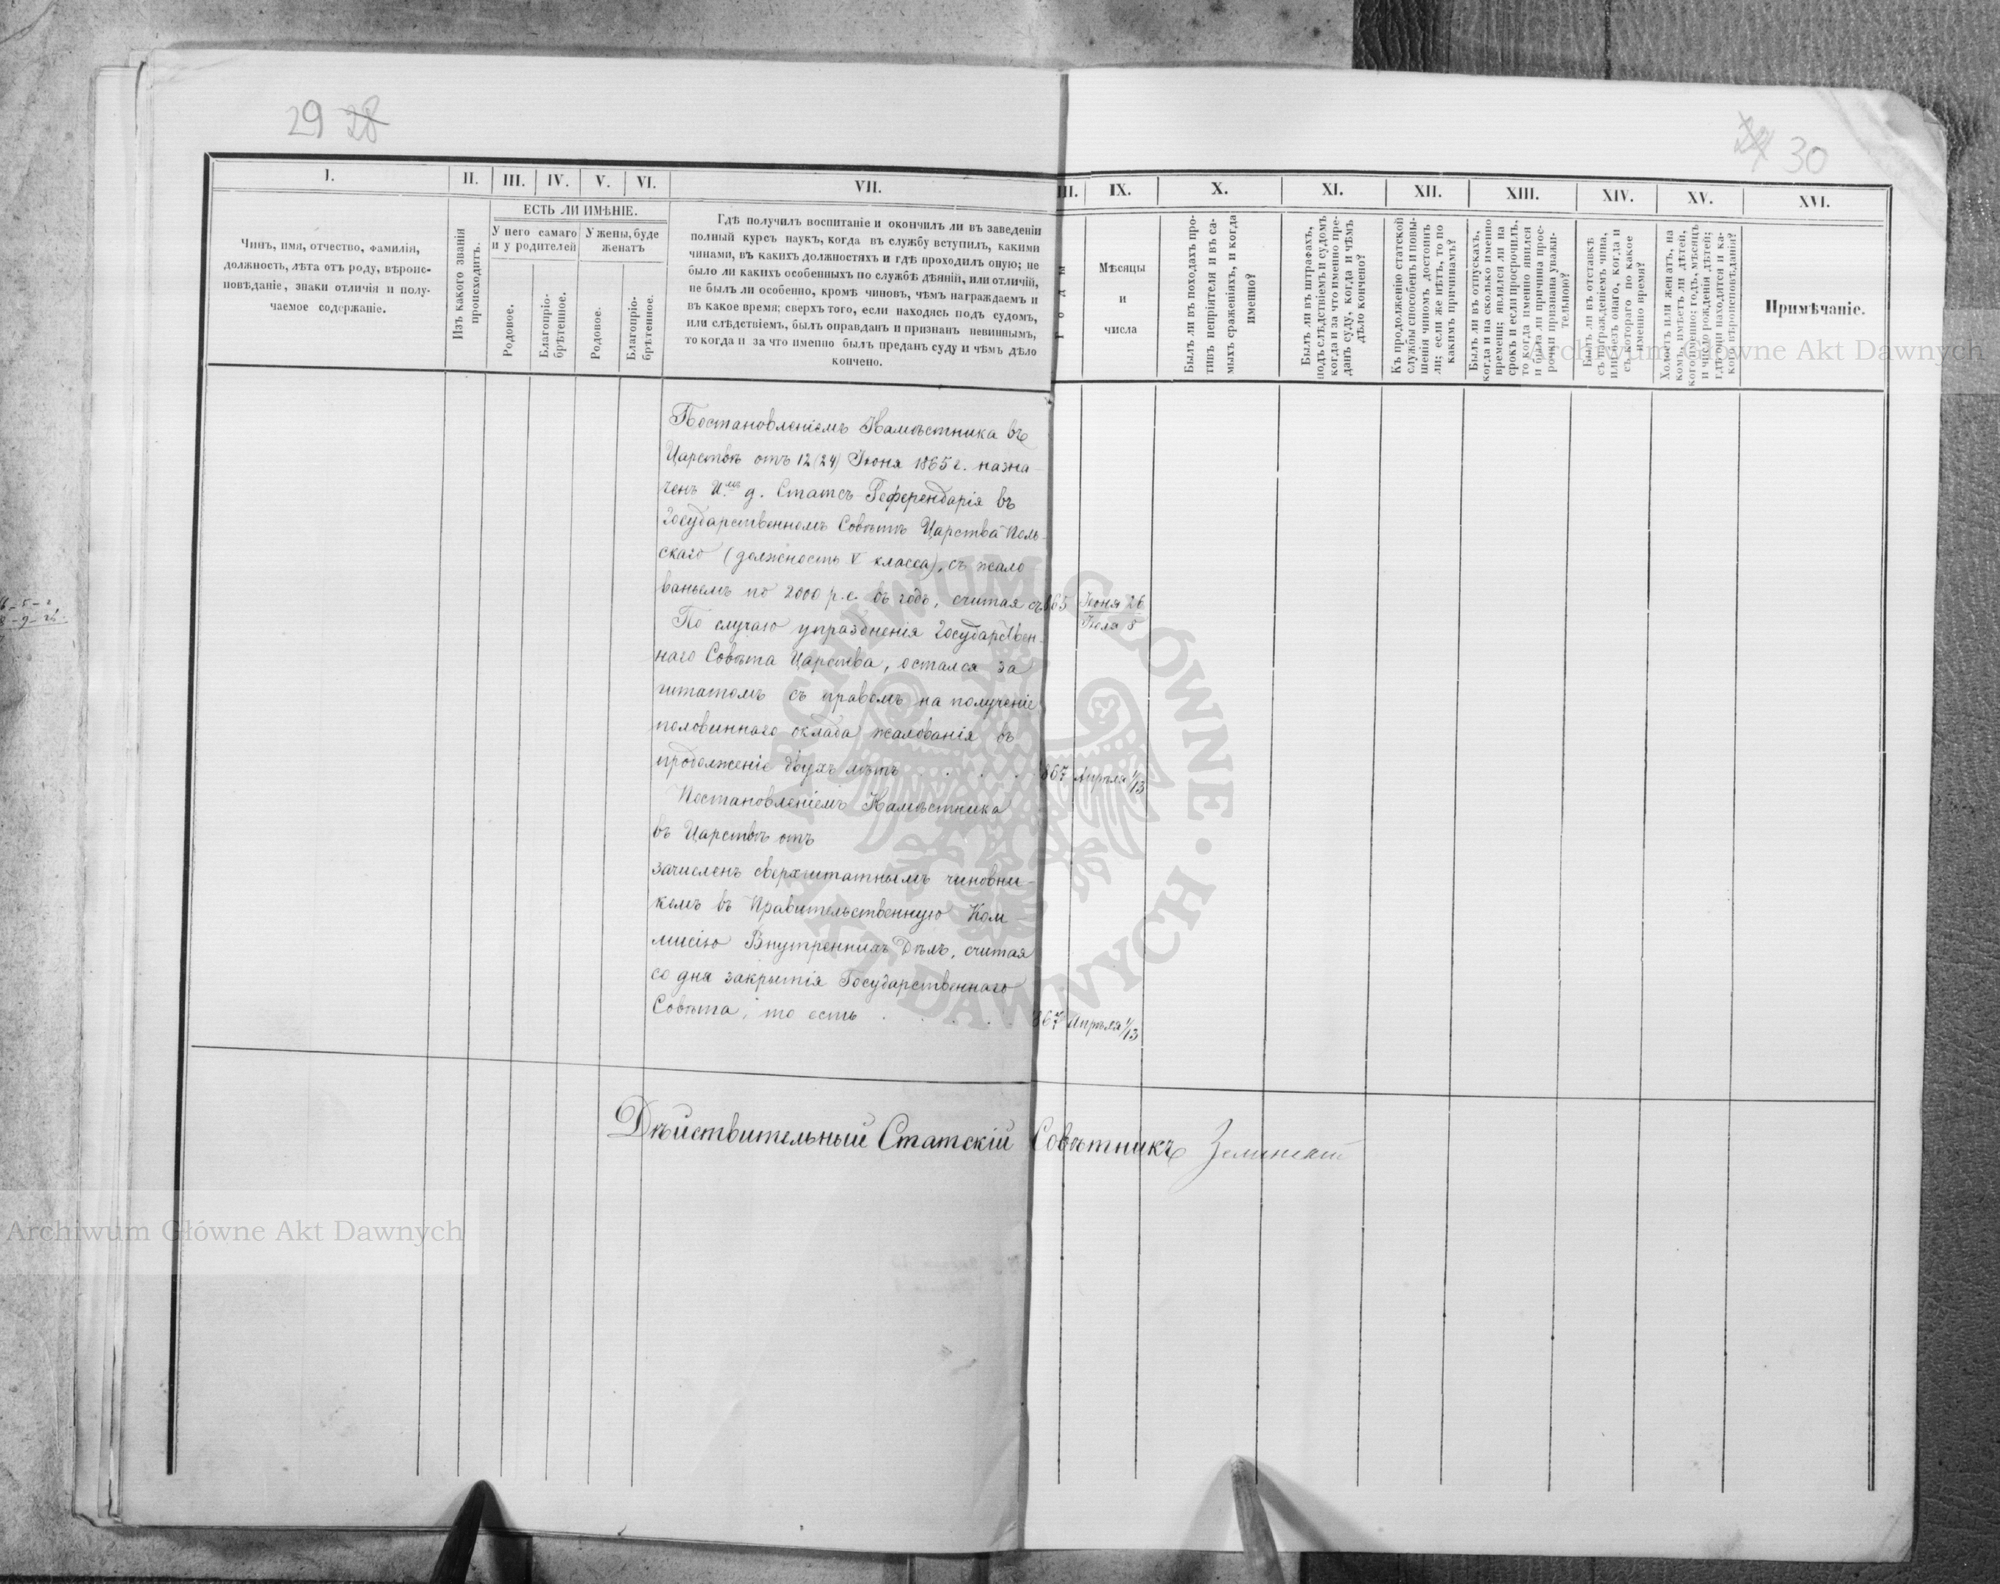 29 28
30
I.
II.
III.
IV.
V.
VI.
VII.
III.
IX.
X.
XI.
XII.
XIII.
XIV.
XV.
XVI.
Чинъ, имя, отчество, фамилія,
должность, лѣта отъ роду, вѣроис-
повѣданіе, знаки отличія и полу-
чаемое содержаніе.
Изъ какого званія
происходитъ.
ЕСТЬ ЛИ ИМѢНІЕ.
У него самаго
и у родителей
У жены, буде
женатъ
Родовое.
Благопріо-
брѣтенное.
Родовое.
Благопріо-
брѣтенное.
Гдѣ получилъ воспитаніе и окончилъ ли въ заведеніи
полный курсъ наукъ, когда въ службу вступилъ, какими
чинами, въ какихъ должностяхъ и гдѣ проходилъ оную; не
было ли какихъ особенныхъ по службѣ дѣяній, или отличій,
не былъ ли особенно, кромѣ чиновъ, чѣмъ награждаемъ и
въ какое время; сверхъ того, если находясь подъ судомъ,
или слѣдствіемъ, былъ оправданъ и признанъ невиннымъ,
то когда и за что именно былъ преданъ суду и чѣмъ дѣло
кончено.
Годы
Мѣсяцы
и
числа
Былъ ли въ походахъ про-
тивъ непріятеля и въ са-
мыхъ сраженіяхъ, и когда
именно?
Былъ ли въ штрафахъ,
подъ слѣдствіемъ и судомъ
когда и за что именно пре-
данъ суду, когда и чѣмъ
дѣло кончено?
Къ продолженію статской
службы способенъ и повы-
шенія чиномъ достоинъ
ли; если же нѣтъ, то по
какимъ причинамъ?
Былъ ли въ отпускахъ,
когда и на сколько именно
времени; являлся ли на
срокъ и если просрочилъ,
то когда именно явился
и была ли причина прос-
рочки признана уважи-
тельною?
Былъ ли въ отставкѣ
съ награжденіемъ чина,
или безъ онаго, когда и
съ котораго по какое
именно время?
Холостъ или женатъ, на
комъ, имѣетъ ли дѣтей,
кого именно; годъ, мѣсяцъ
и число рожденія дѣтей;
гдѣ они находятся и ка-
кого вѣроисповѣданія?
Примѣчаніе.
Постановленіемъ Намѣстника въ
Царствѣ отъ 12 (24) Іюня 1865 г. назна-
ченъ И.мъ д. Статсъ-Референдарія въ
Государственномъ Совѣтѣ Царства Поль-
скаго (должность V класса), съ жало-
ваньемъ по 2000 р. с. въ годъ, считая съ 865 Іюня 26
Іюля 8
По случаю упраздненія Государствен-
наго Совѣта Царства, остался за
штатомъ съ правомъ на полученіе
половиннаго оклада жалованія въ
продолженіе двухъ лѣтъ . . . . 867 Апрѣля 1/13
Постановленіемъ Намѣстника
въ Царствѣ отъ
зачисленъ сверхштатнымъ чиновни-
комъ въ Правительственную Ком-
мисію Внутреннихъ Дѣлъ, считая
со дня закрытія Государственнаго
Совѣта, то есть . . . . 867 Апрѣля 1/13
Дѣйствительный Статскій Совѣтникъ
Archiwum Główne Akt Dawnych
Archiwum Główne Akt Dawnych
ARCHIWUM GŁÓWNE · AKT DAWNYCH ·